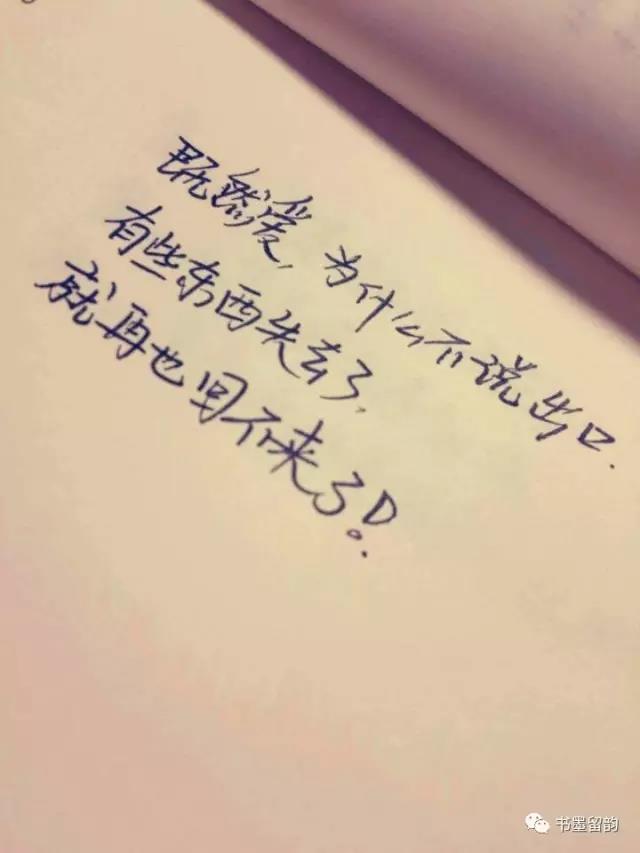 既然爱,为什么不说出口.
有些东西失去了,
就再也回不来了!
书墨留韵